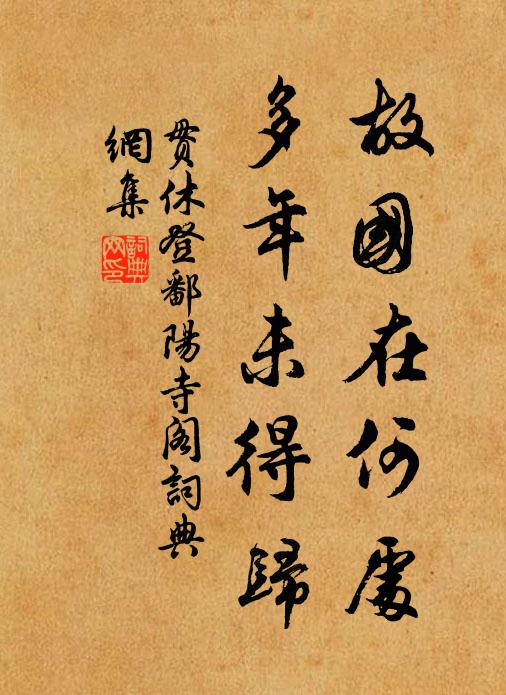 故國在何處
多年未得歸
贯休登鄱陽寺阁詞典
網集
詞典
网印